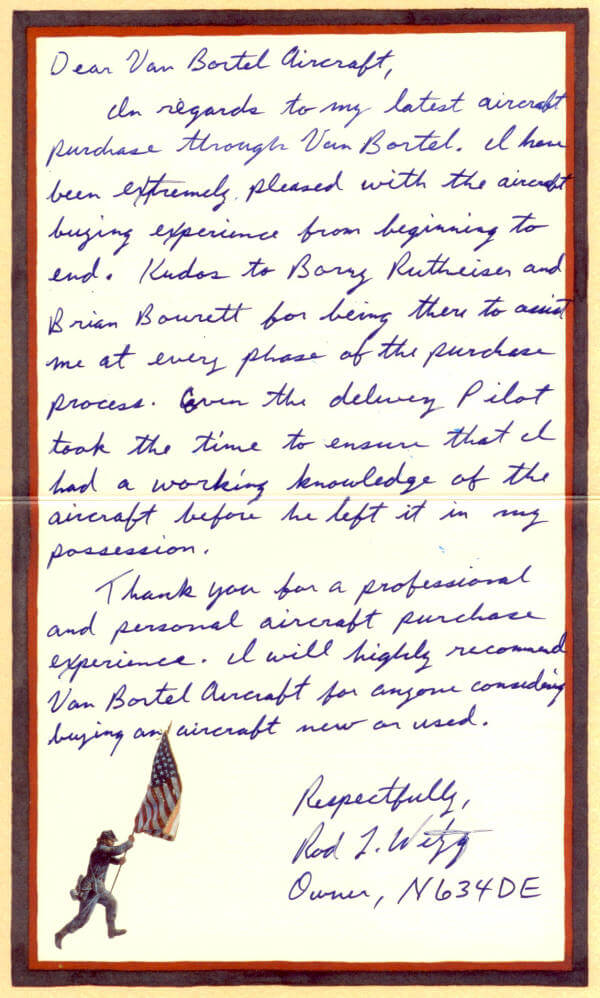 Dear Van Bortel Aircraft,
In regards to my latest aircraft
purchase through Van Bortel. I have
been extremely pleased with the aircraft
buying experience from beginning to
end. Kudos to Barry Rutheiser and
Brian Bourett for being there to assist
me at every phase of the purchase
process. Even the delivery Pilot
took the time to ensure that I
had a working knowledge of the
aircraft before he left it in my
possession.
Thank you for a professional
and personal aircraft purchase
experience. I will highly recommend
Van Bortel Aircraft for anyone considering
buying an aircraft new or used.
Respectfully,
Rod L.
Owner, N634DE